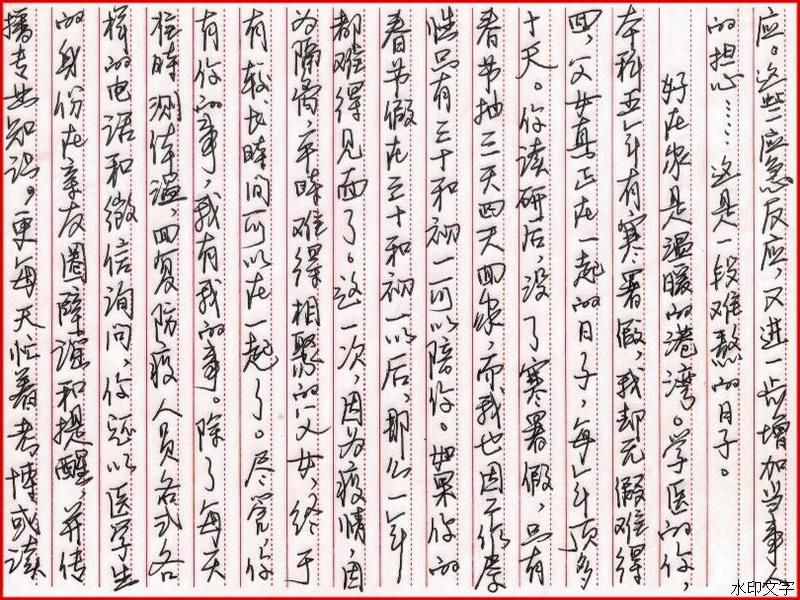 应。这些应急反应,又进一步增加当事人
的担心……这是一段难熬的日子。
好在家是温暖的港湾。学医的你,
本科五年有寒暑假,我却无假难得
回,父女真正在一起的日子,每年顶多
十天。你读研后,没了寒暑假,只有
春节抽三天四天回家,而我也因工作属
性只有三十和初一可以陪你。如果你的
春节假在三十和初一以后,那么一年
都难得见面了。这一次,因为疫情,因
为隔离,平时难得相聚的父女,终于
有较长时间可以在一起了。尽管,你
有你的事,我有我的事。除了每天
按时测体温,回复防疫人员各式各
样的电话和微信询问,你还以医学生
的身份在亲友圈辟谣和提醒,并传
播专业知识。更每天忙着考博或读
水印文字